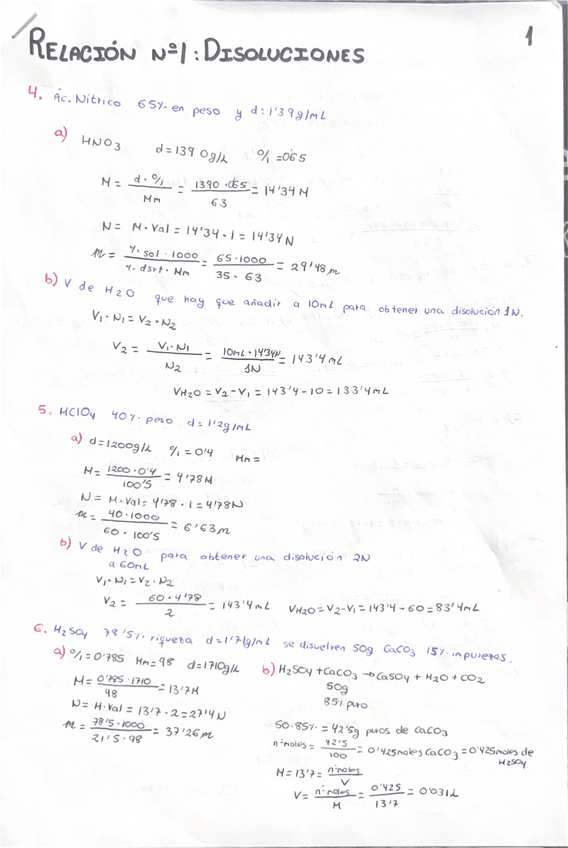 RELACIÓN Nº1: DISOLUCIONES
1
4. Ác. Nítrico 65% en peso y d: 1'39g/mL
a) HNO3 d=1390g/L %1 =0'65
M = d · %1 / Mm = 1390 · 0'65 / 63 = 14'34 M
N = M · Val = 14'34 · 1 = 14'34 N
m = % sol · 1000 / % dsrt · Mm = 65 · 1000 / 35 · 63 = 29'48 m
b) V de H2O que hay que añadir a 10mL para obtener una disolución 1N.
V1 · N1 = V2 · N2
V2 = V1 · N1 / N2 = 10mL · 14'34N / 1N = 143'4 mL
VH2O = V2 - V1 = 143'4 - 10 = 133'4 mL
5. HClO4 40% peso d=1'2g/mL
a) d=1200g/L %1 =0'4 Mm =
M = 1200 · 0'4 / 100'5 = 4'78M
N = M · Val = 4'78 · 1 = 4'78N
m = 40 · 1000 / 60 · 100'5 = 6'63 m
b) V de H2O para obtener una disolución 2N
a 60mL
V1 · N1 = V2 · N2
V2 = 60 · 4'78 / 2 = 143'4 mL VH2O = V2 - V1 = 143'4 - 60 = 83'4 mL
6. H2SO4 78'5% riqueza d=1'71g/mL se disuelven 50g CaCO3 15% impurezas.
a) %1 = 0'785 Mm = 98 d=1710g/L
M = 0'785 · 1710 / 98 = 13'7M
N = M · Val = 13'7 · 2 = 27'4 N
m = 78'5 · 1000 / 21'5 · 98 = 37'26 m
b) H2SO4 + CaCO3 → CaSO4 + H2O + CO2
50g
85% puro
50 · 85% = 42'5g puros de CaCO3
nº moles = 42'5 / 100 = 0'425 moles CaCO3 = 0'425 moles de
H2SO4
M = 13'7 = nº moles / V
V = nº moles / M = 0'425 / 13'7 = 0'031L